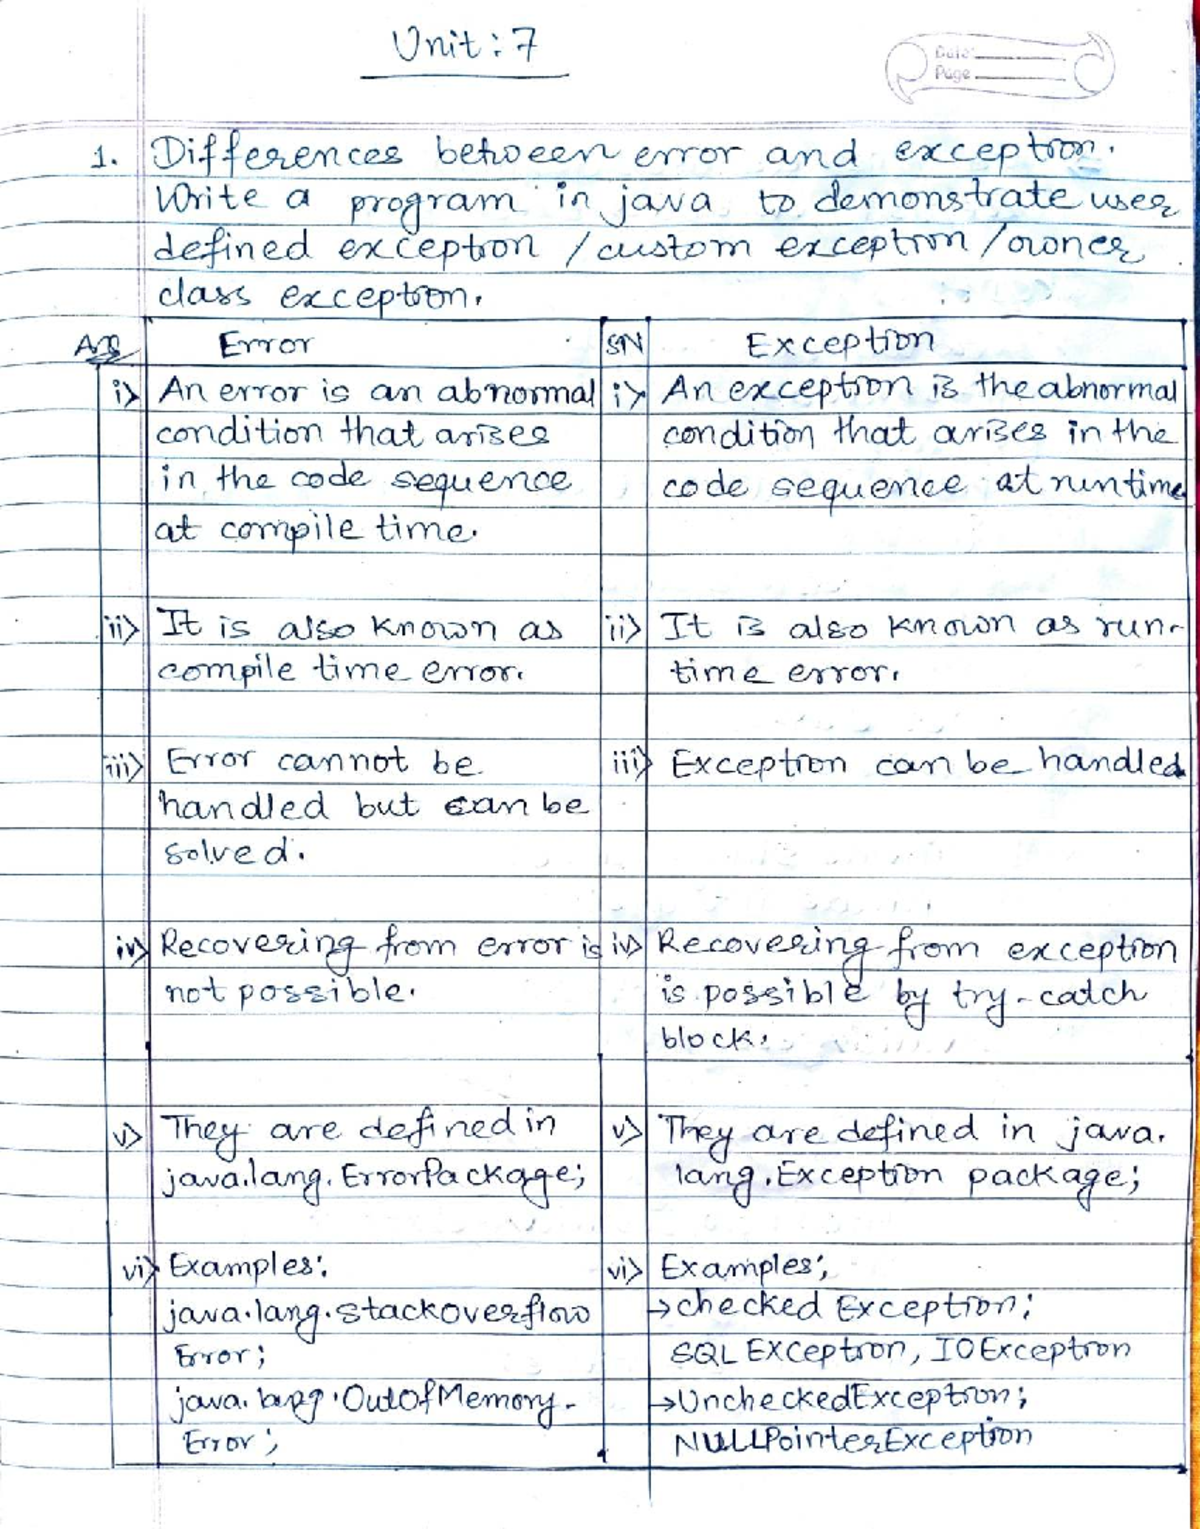 Unit: 7
Date:
Page
1. Differences between error and exception.
Write a program in java to demonstrate user
defined exception / custom exception / owner
class exception.
Ans Error SN Exception
i> An error is an abnormal
condition that arises
in the code sequence
at compile time.
i> An exception is the abnormal
condition that arises in the
code sequence at runtime
ii> It is also known as
compile time error.
ii> It is also known as run-
time error.
iii> Error cannot be
handled but can be
solved.
iii> Exception can be handled
iv> Recovering from error is
not possible.
iv> Recovering from exception
is possible by try-catch
block.
v> They are defined in
java.lang.ErrorPackage;
v> They are defined in java.
lang.Exception package;
vi> Examples:
java.lang.stackoverflow
Error;
java.lang.OutOfMemory-
Error;
vi> Examples;
→checked Exception;
SQL Exception, IOException
→UncheckedException;
NULLPointerException